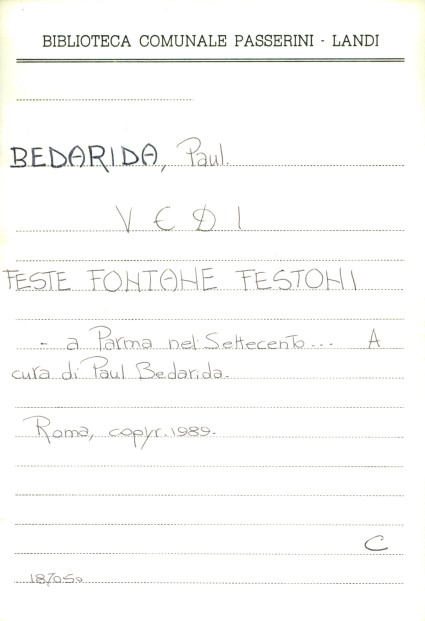 BIBLIOTECA COMUNALE PASSERINI - LANDI
BEDARIDA, Paul.
VEDI
FESTE FONTANE FESTONI
- a Parma nel Settecento... A
cura di Paul Bedarida.
Roma, copyr. 1989.
C
187050